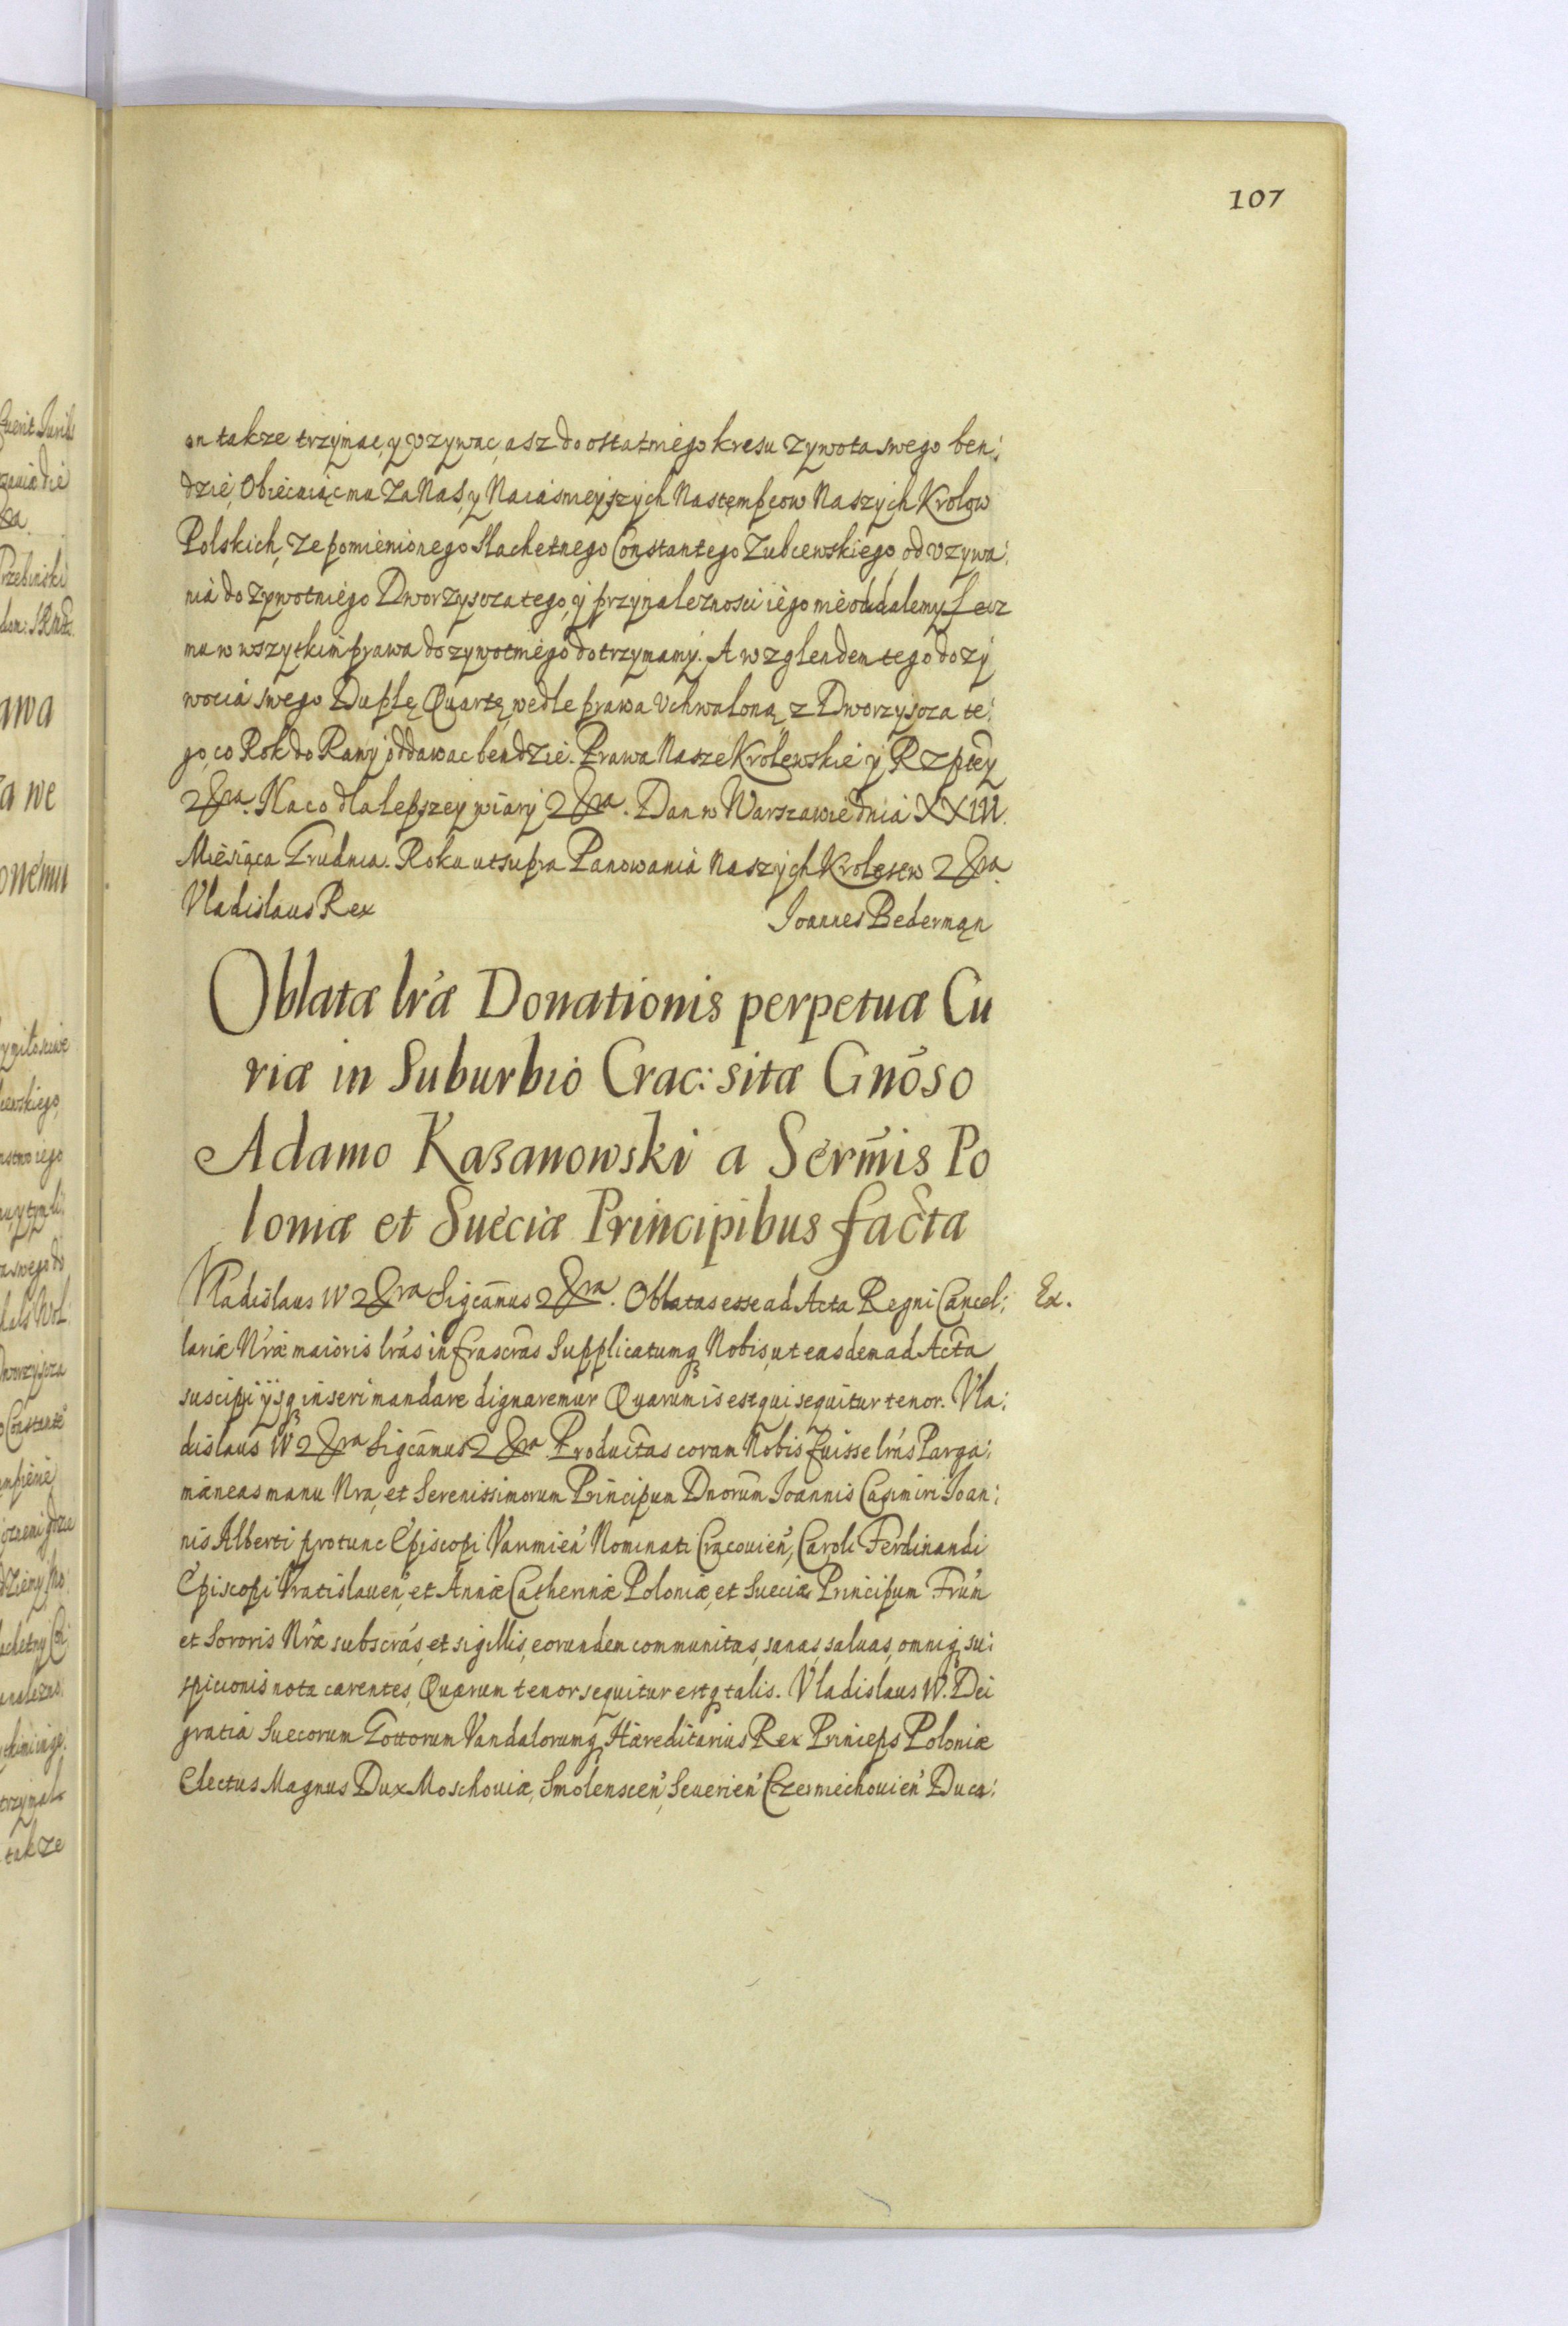 107
on takze trzymac, y vzywac, asz do ostatniego kresu zywota swego ben:
dzie, Obiecuiąc mu Za Nas, y Naiasnieyszych Nastempcow Naszych Krolow
Polskich, ze pomienionego Slachetnego Constantego Zubcewskiego od vzywa:
nia do Zywotniego Dworzyszcza tego, y przynaleznosci iego nie oddalemy Lecz
mu w wszytkim prawa dozywotniego dotrzymamy. A wzglendem tego dozy
wocia swego Duplę Quartę, wedle prawa vchwaloną z Dworzyszcza te:
go, co Rok do Rawy oddawac bendzie. Prawa Nasze Krolewskie y Rzptey
etc. Na co dla lepszey wiary etc. Dan w Warszawie dnia XXIII.
Miesiąca Grudnia. Roku ut supra Panowania Naszych Krolestw etc.
Vladislaus Rex
Joannes Bederman
Oblatæ lræ Donationis perpetuæ Cu
riæ in Suburbio Crac: sitæ Gnoso
Adamo Kazanowski a Sermis Po
loniæ et Sueciæ Principibus factæ
Vladislaus IV etc. Sigcamus etc. Oblatas esse ad Acta Regni Cancel:
Ex.
lariæ Nræ maioris lras infrascras Supplicatumq Nobis, ut easdem ad Acta
suscipi ijsq inseri mandare dignaremur Quarum is est qui sequitur tenor. Vla:
dislaus IV etc. Sigcamus etc. Productas coram Nobis fuisse lras Parga:
mæneas manu Nra, et Serenissimorum Principum Dnorum Joannis Casimiri Joan:
nis Alberti protunc Episcopi Varmien Nominati Cracouien, Caroli Ferdinandi
Episcopi Vratislauen, et Annæ Catherinæ Poloniæ, et Sueciæ Principum Frum
et Sororis Nræ subscras, et sigillis, eorundem communitas, sanas, saluas, omniq su:
spicionis nota carentes, Quarum tenor sequitur estq talis. Vladislaus IV. Dei
gratia Suecorum Gottorum Vandalorumq Hæreditarius Rex Princeps Poloniæ
Electus Magnus Dux Moschouiæ, Smolenscen, Seuerien Czerniechouien Duca: